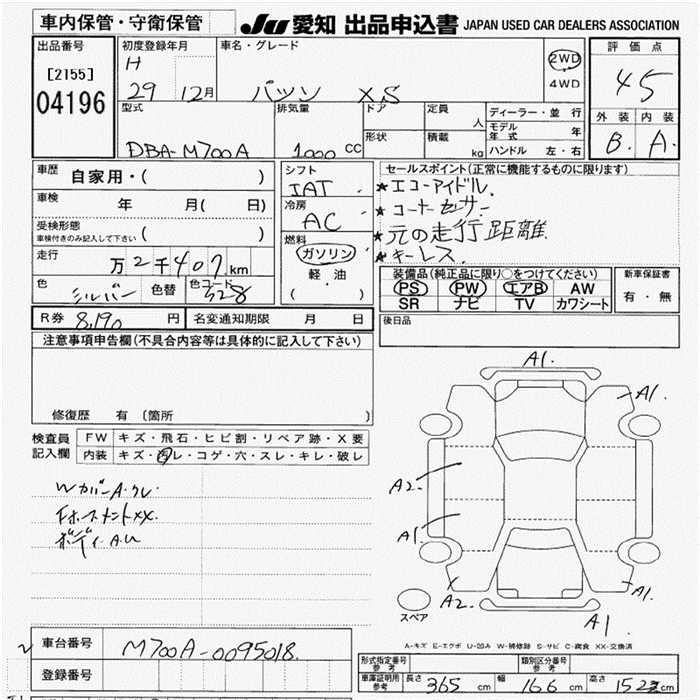 車内保管・守衛保管
JU 愛知 出品申込書 JAPAN USED CAR DEALERS ASSOCIATION
出品番号
[2155]
04196
初度登録年月
H
29 12月
車名・グレード
パッソ XS
2WD
4WD
評価点
4.5
外装 内装
B. A.
型式
DBA-M700A
排気量
1000 CC
ドア
形状
定員
人
積載
kg
ディーラー・並行
モデル年式 年
ハンドル 左・右
車歴
自家用・( )
車検
年 月( 日)
受検形態
車検付きのみ記入して下さい ( )
走行
万2千407km
色
シルバー 色替
色コード
S28
シフト
IAT
冷房
AC
燃料
ガソリン
軽・油
( )
セールスポイント(正常に機能するものに限ります)
★エコーアイドル
★コーナーセンサー
★元の走行距離
★キーレス
装備品(純正品に限り○をつけてください)
PS PW エアB AW
SR ナビ TV カワシート
新車保証書
有・無
R券 8,190 円
名変通知期限 月 日
後日品
注意事項申告欄(不具合内容等は具体的に記入して下さい)
修復歴 有〔箇所 〕
検査員
記入欄
FW キズ・飛石・ヒビ割・リペア跡・X要
内装 キズ・汚レ・コゲ・穴・スレ・キレ・破レ
WカバーA.クレ
FホースメントXX.
ボディ A.U
A1.
A1.
A2.
A1.
A2.
A1.
A1
スペア
A-キズ E-エクボ U-凹み W-補修跡 S-サビ C-腐食 XX-交換済
車台番号 M700A-0095018.
登録番号
形式指定番号
参考
類別区分番号
参考
車庫証明用
参考
長さ 365 cm 幅 166 cm 高さ 152 cm